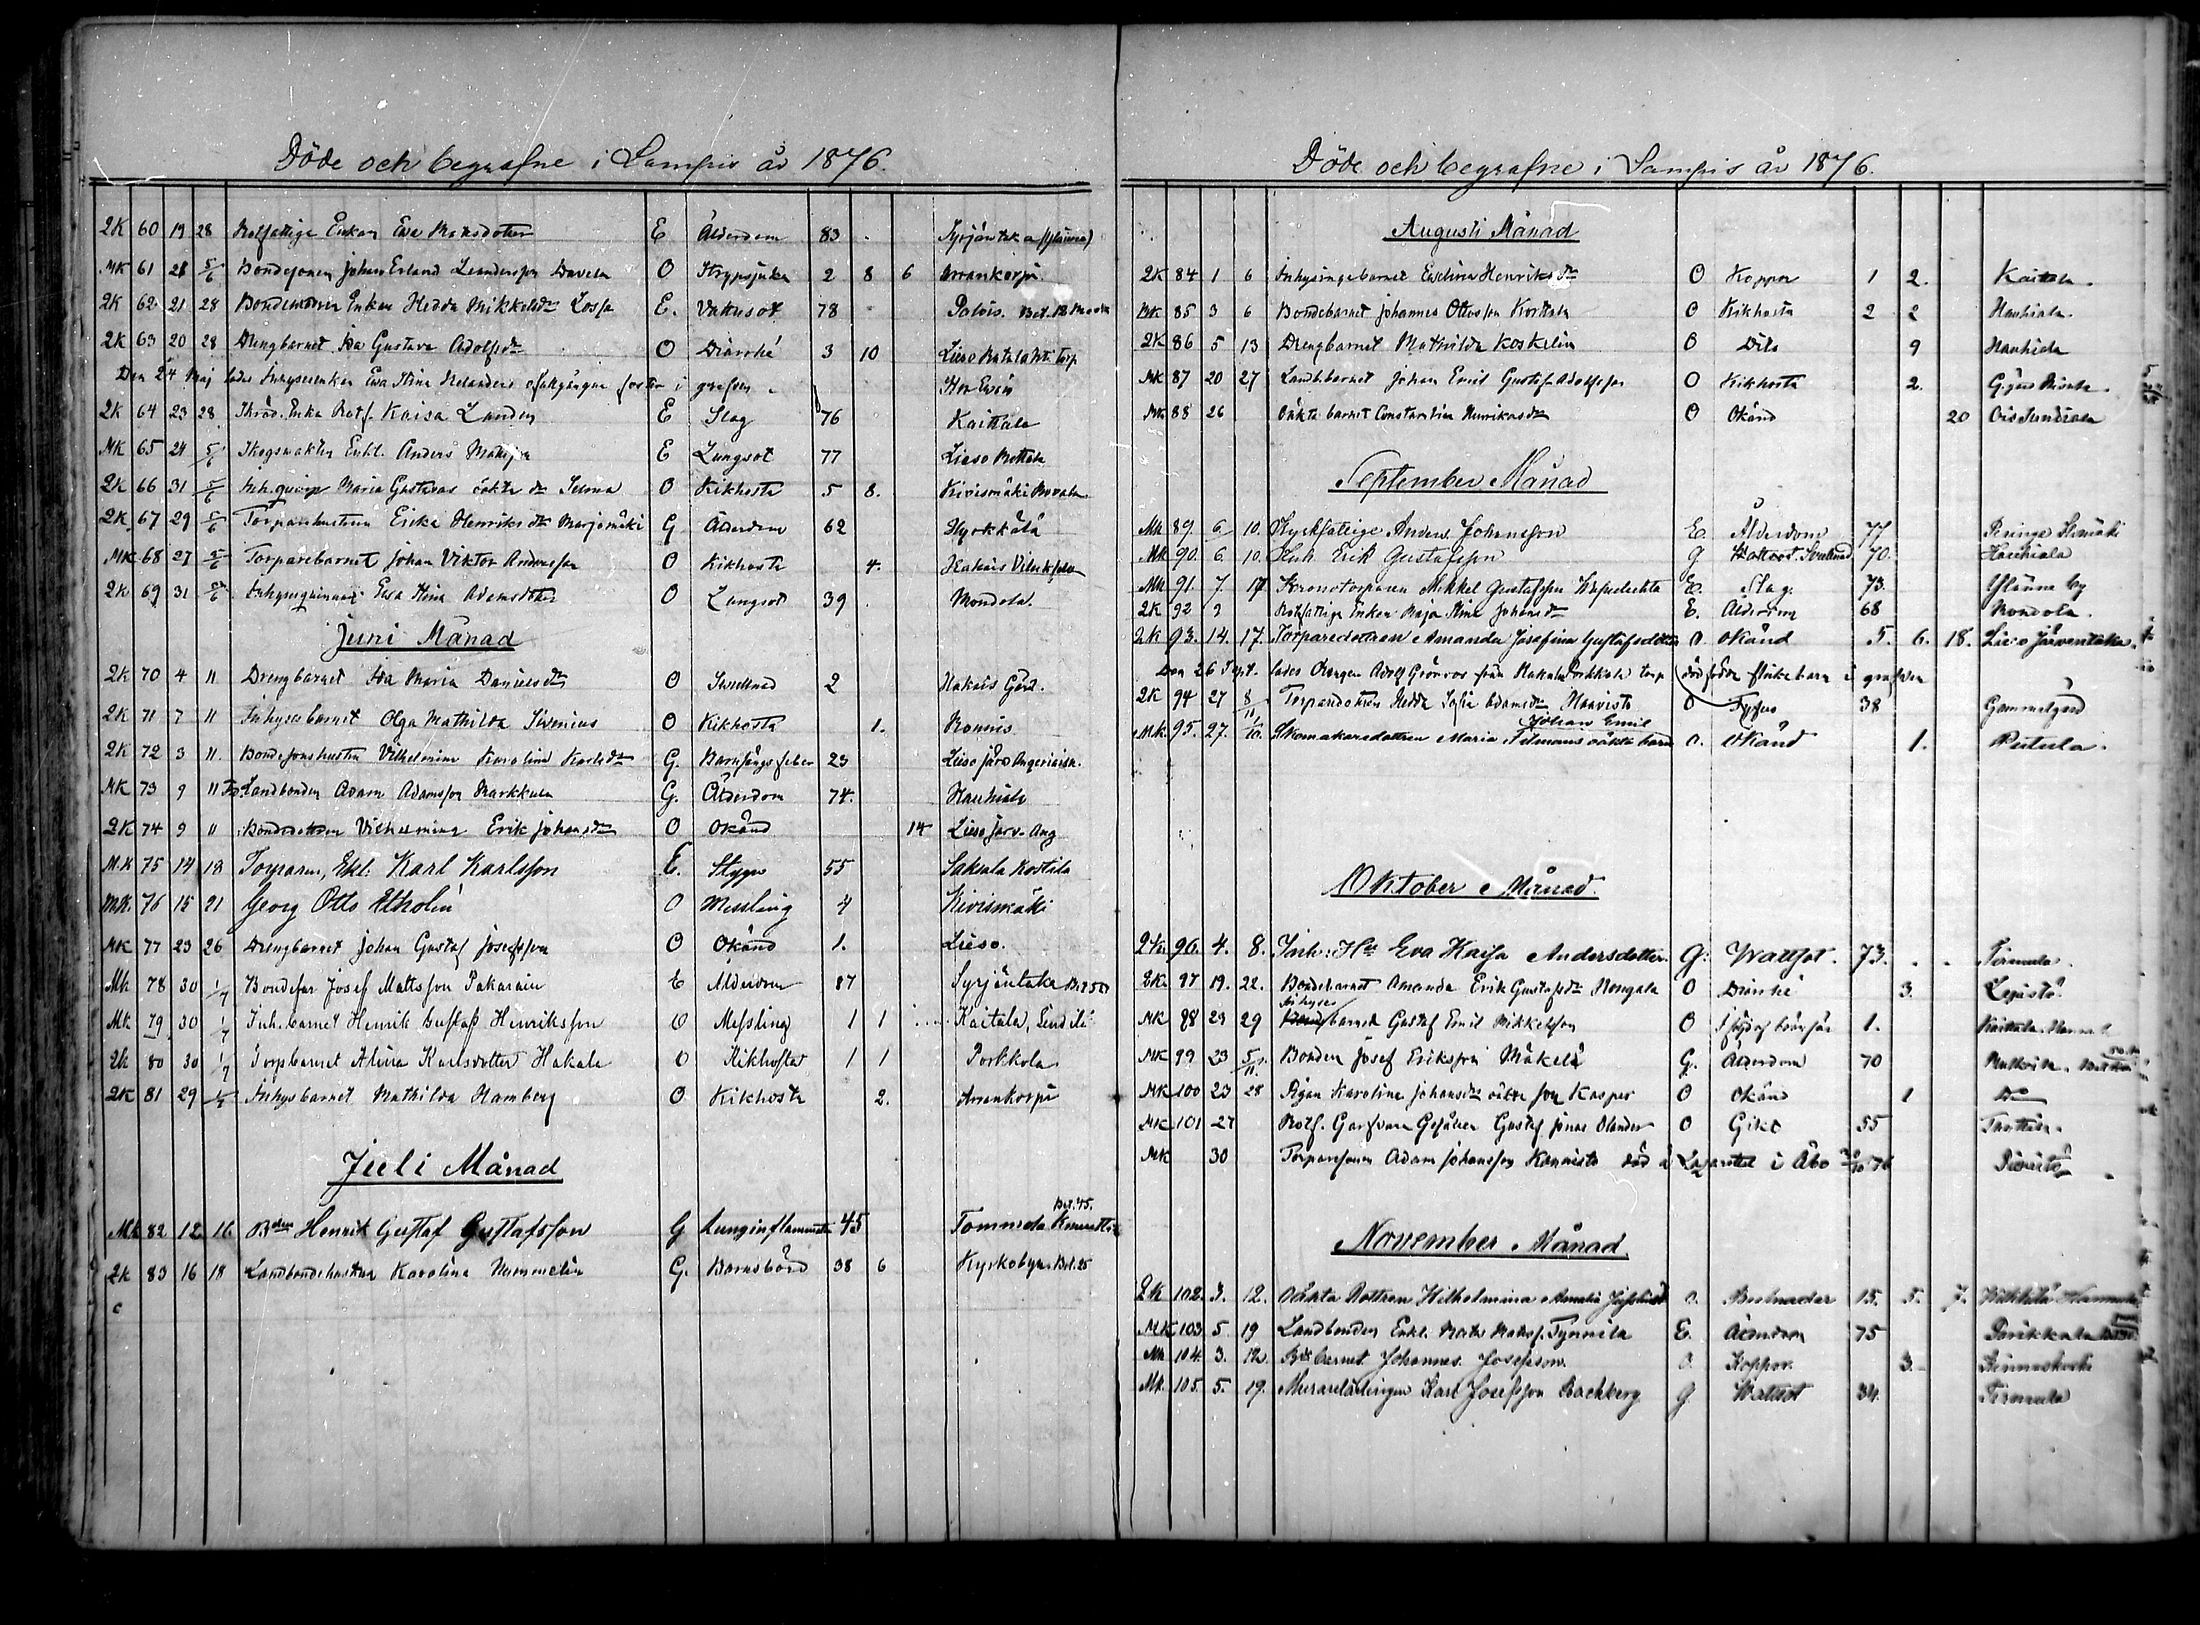 Döde och begrafne i Lampis år 1876.
QK 60 19 28 Rotfattige Enkan Eva Matsdotter E Ålderdom 83 Syrjäntaka
MK 61 28 5/6 Bondesonen Johan Erland Leandersson Davela O Strypsjuka 2 8 6 Arrankorpi
QK 62 21 28 Enkan Hedda Mikkelsdr E. Vattusot 78
QK 63 20 28 Drengbarnet Ida Gustava Adolfsdr O Diarrhé 3 10 Lieso
Den 24 Maj lades Inhysesenkan Eva Stina i grafven
QK 64 23 28 Enka Rotf. Kaisa Landen E Slag 76 Kaittala
MK 65 24 5/6 Skogsvakten Enkl. Anders E Lungsot 77 Lieso
QK 66 31 5/6 Inh. qvinn Maria Gustavas oäkta dr Selma O Kikhosta 5 8. Kivismäki
QK 67 29 5/6 Torparehustrun Erika Henriksdr Marjomäki G Ålderdom 62 Hyrkkälä
MK 68 27 5/6 Torparebarnet Johan Viktor Andersson O Kikhosta 4.
QK 69 31 5/6 Inhysesqvinnan Eva Stina Adamsdotter O Lungsot 39 Mondola.
Juni Månad
QK 70 4 11 Drengbarnet Ida Maria Danielsdr O Svullnad 2 Hakois Gård.
QK 71 7 11 Inhysesbarnet Olga Mathilda Sirenius O Kikhosta 1. Ronnis
QK 72 3 11. Bondesonshustrun Vilhelmina Karolina Karlsdr G. Barnsängsfeber 23 Lieso
MK 73 9 11 Landbonden Adam Adamsson Markkula G. Ålderdom 74. Hauhiala
QK 74 9 11 Bondedottren Vilhelmina Erik Johansdr O Okänd 14 Lieso Järv. Ang
MK 75 14 18 Torparen, Ekl. Karl Karlsson E. Stygn 55 Saksala Kostila
MK. 76 15 21 Georg Otto Etholén O Messling 4 Kivismäki
MK 77 23 26 Drengbarnet Johan Gustaf Josefsson O Okänd 1. Lieso.
Mk 78 30 1/7 Bondefar Josef Mattsson Pakarain E Ålderdom 87 Syrjäntaka
MK 79 30 1/7 Inh. barnet Henrik Gustaf Henriksson O Messling 1 1 Kaitala,
Qk 80 30 1/7 Torpbarnet Alina Karlsdotter Hakala O Kikhosta 1 1 Porkkola
QK 81 29 Inhysbarnet Mathilda Hamberg O Kikhosta 2. Arrankorpi
Juli Månad
Mk 82 12 16 Henrik Gustaf Gustafsson G Lunginflammation 45 Tommola
Qk 83 16 18 Landbondehustrun Karolina Nummelin G. Barnsbörd 38 6 Kyrkobyn
Döde och begrafne i Lampis år 1876.
Augusti Månad
QK 84 1 6 Inhysingebarnet Evelina Henriksdr O Koppor 1 2. Kaitala.
MK 85 3 6 Bondebarnet Johannes Ottosson O Kikhosta 2 2 Hauhiala.
QK 86 5 13 Drengbarnet Mathilda Koskelin O Dito 9 Hauhiala
MK 87 20 27 Landb.barnet Johan Emil Gustaf Adolfsson O Kikhosta 2.
MK 88 26 Oäkta barnet Constantin O Okänd 20
September Månad
Mk 89. 6 10. Kyrkfattige Anders Johansson E. Ålderdom 77
MK 90. 6. 10. Inh. Erik Gustafsson G 70. Hauhiala
Mk 91. 7. 17 Kronotorparen Mikkel Gustafsson E. Slag. 73.
QK 92 9 Rotfattige Enkan Maja Stina Johansdr E. Ålderdom 68 Mondola.
QK 93. 14. 17. Torparedottren Amanda Josefina Gustafsdotter O. Okänd 5. 6. 18. Lieso Järventaka.
Den 26 Sept. lades Drengen Adolf Grönros från Porkkola torp dödfödda flickebarn i grafven
QK 94 27 8/10 Torparedottren Hedda Sofia Adamsdr O Tyfus 38 Gammelgård
Johan Emil
MK. 95. 27. 1/10. Skomakaredottren Maria oäkta barn O. Okänd 1. Putula.
Oktober Månad.
QK. 96. 4. 8. Inh: Hu Eva Kaisa Andersdotter. G. Wattsot. 73. Tirmula.
QK. 97 19. 22. Bondebarnet Amanda Erik Gustafsdr O Diarrhé 3.
Inhyses
MK 98 23 29 barnet Gustaf Emil Mikkelsson O 1. Kaitala
MK 99 23 5/11 Bonden Josef Eriksson Mäkelä G. Ålderdom 70
MK 100 23 28 Pigan Karolina Johansdr oäkta son Kasper O Okänd 1
MK 101 27 Rotf. Gustaf Jonas Olander O Gikt 55
MK 30 Torparesonen Adam Johansson Kannisto död å Lazarettet i Åbo 76
November Månad
QK 102. 3. 12. Oäkta Dottren Wilhelmina Amalia O. 15. 5. 7.
MK 103 5 19 Landbonden Enkl. E. Ålderdom 75
Mk 104. 3. 12. barnet Johannes Josefsson. O. Koppor. 3.
MK. 105. 5. 19. Murarelärlingen Karl Josefsson Backberg G Wattsot 34. Tirmula